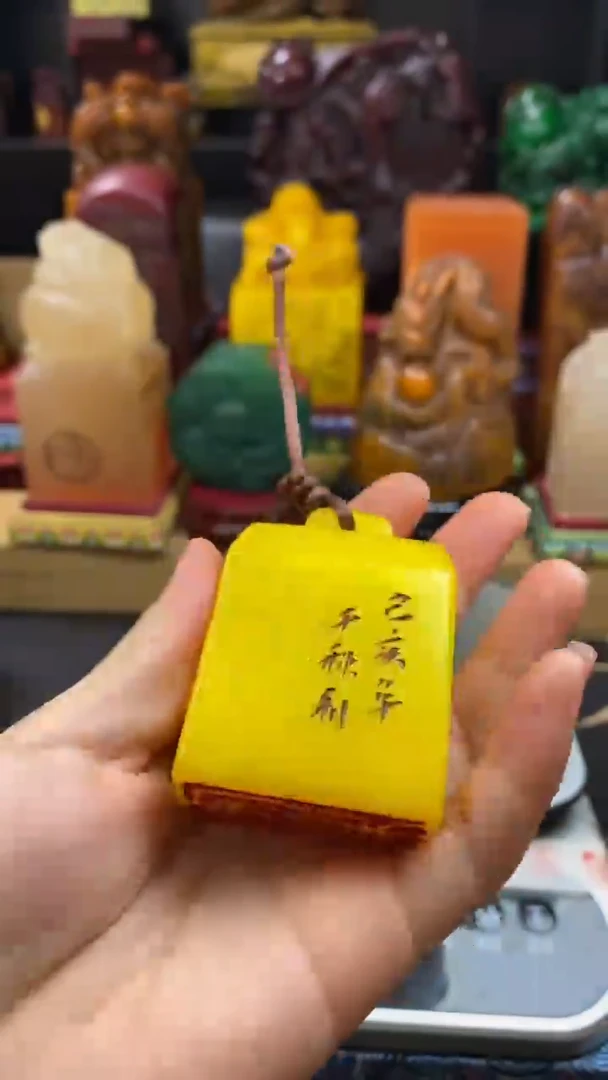 己亥年
千秋刻